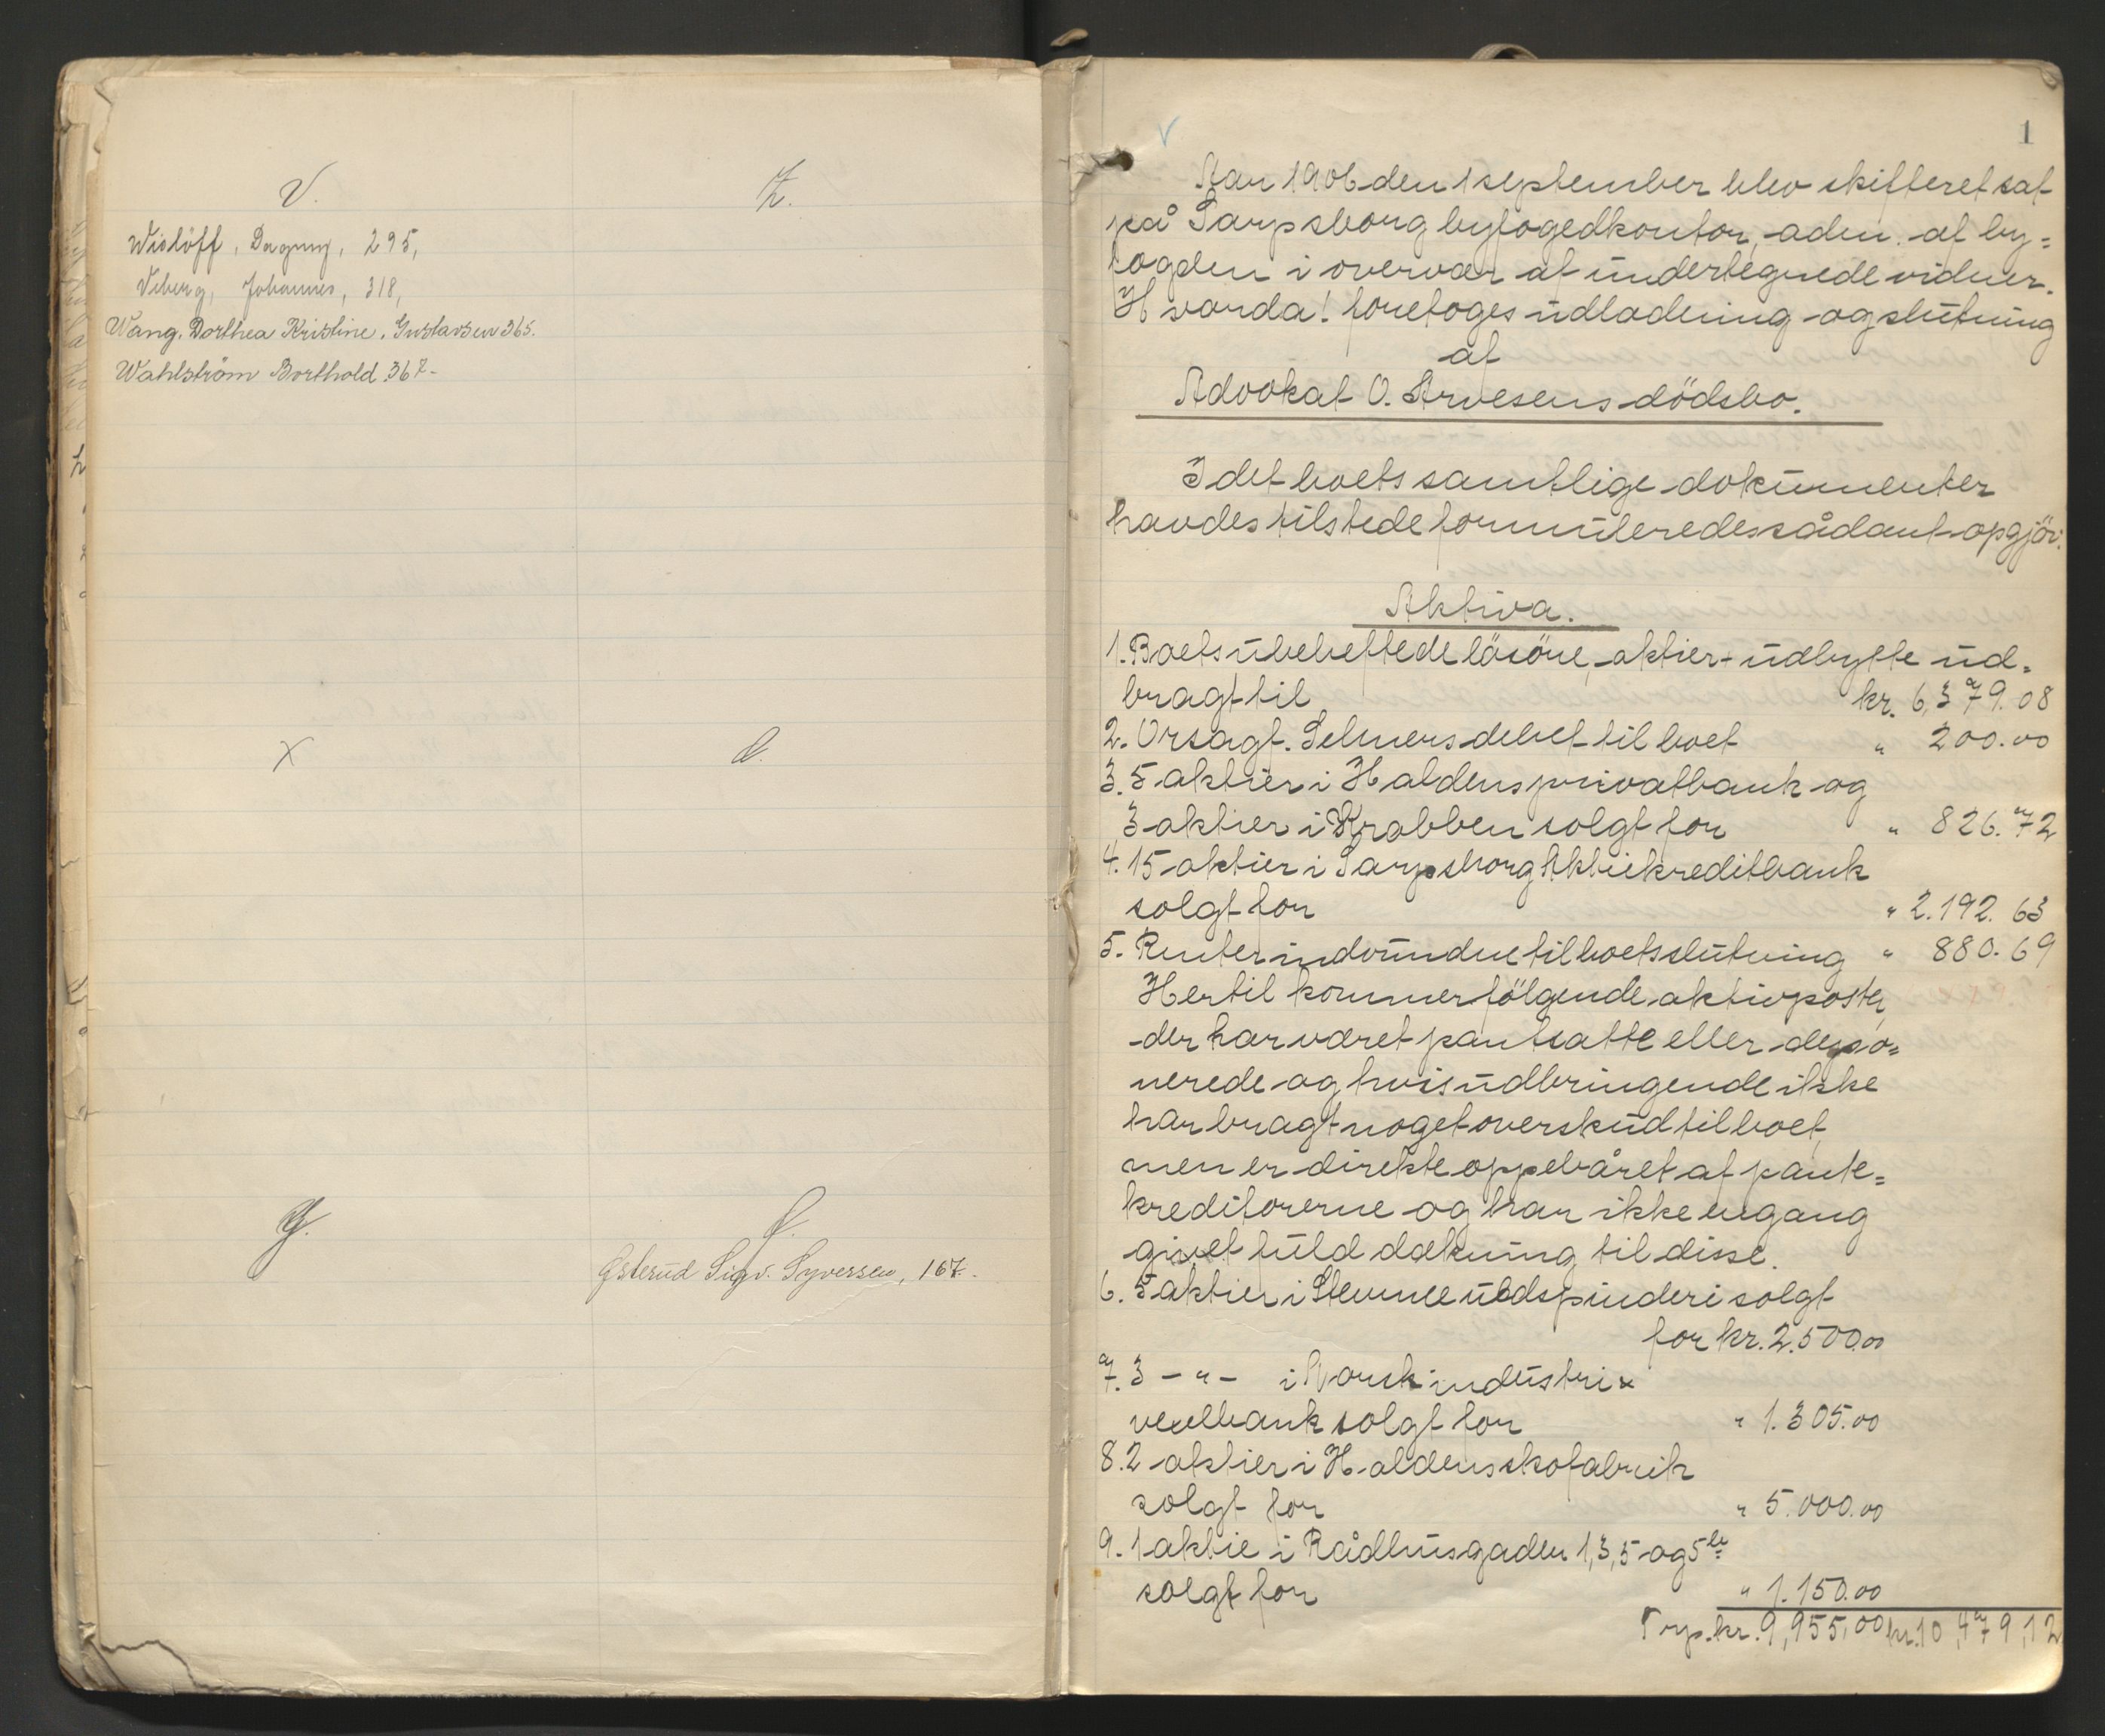 V.
Wislöff, Dagny, 295,
Veberg, Johannes, 318,
Wang, Dorthea Kristine, Gustavsen 365.
Wahlström Borthold 367-
Z.
X
Y.
Østerud Sigv. Syversen, 167.-
1
Aar 1906 den 1 september blev skifteret sat
på Sarpsborg byfogedkontor, adm. af by=
fogden i overvær af undertegnede vidner.
Hvorda! foretoges udlodning og slutning
af
Advokat O. Arvesens dödsbo.
I det boets samtlige dokumenter
havdes tilstede formuleredes sådant opgjör.
Aktiva.
1. Boets ubeheftede lösöre, aktier-udbytte ud=
bragt til kr. 6,379.08
2. Orsagf. Selmers debet til boet " 200.00
3. 5 aktier i Haldens privatbank og
3 aktier i Krabben solgt for " 826.72
4. 15 aktier i Sarpsborg Aktiekreditbank
solgt for " 2.192.63
5. Renter indvundne til boets slutning " 880.69
Hertil kommer fölgende aktivposter,
der har været pantsatte eller depo=
nerede og hvis udbringende ikke
har bragt noget overskud til boet,
men er direkte oppebåret af pant=
kreditorerne og har ikke engang
givet fuld dækning til disse.
6. 5 aktier i uldspinderi solgt
for kr. 2.500.00
7. 3 - " - i Norsk industri &
vexelbank solgt for " 1.305.00
8. 2 aktier i Haldens skofabrik
solgt for " 5.000.00
9. 1 aktie i Rådhusgaden 1, 3, 5 og 5 b
solgt for " 1.150.00
Trp. kr. 9,955,00 kr. 10,479,12